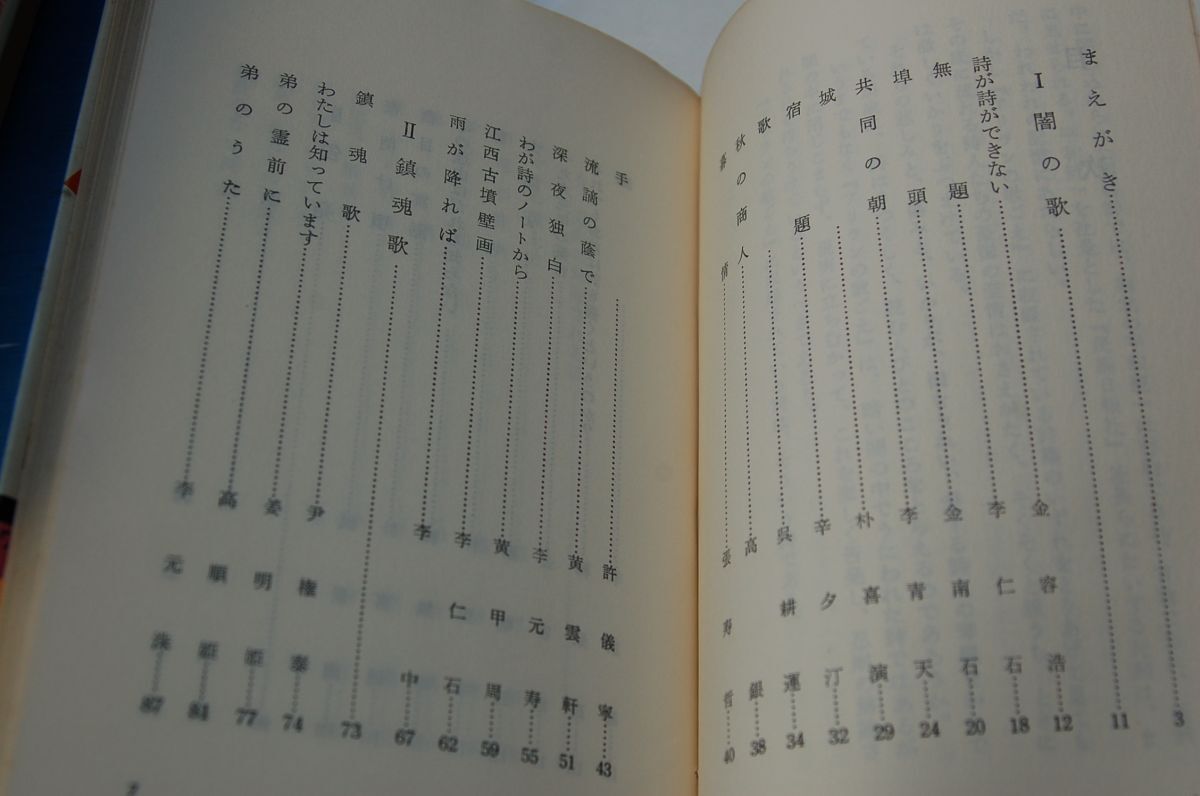 まえがき……3
Ⅰ 闇の歌……11
詩が詩ができない……金容浩……12
無題……李仁石……18
埠頭……金南石……20
共同の朝……李青天……24
城……朴喜演……29
宿題……辛夕汀……32
歌……呉耕運……34
秋の商人……高銀……38
春情……張寿哲……40
手……許儀寧……43
流謫の蔭で……黄雲軒……51
深夜独白……李元寿……55
わが詩のノートから……黄甲周……59
江西古墳壁画……李仁石……62
雨が降れば……李中……67
Ⅱ 鎮魂歌……73
鎮魂歌……尹権泰……74
わたしは知っています……姜明……77
弟の霊前に……高順……81
弟のうた……李元……87